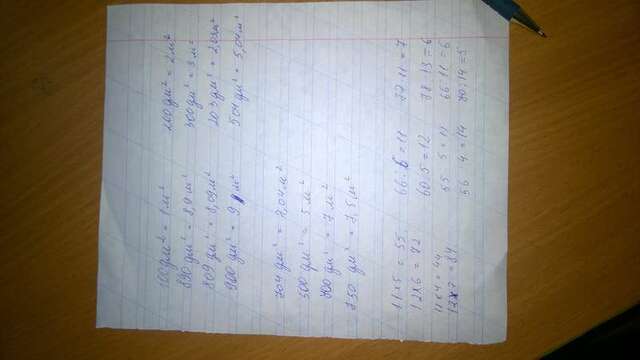 100 дм² = 1 м² 200 дм² = 2 м²
890 дм² = 8,9 м² 300 дм² = 3 м²
809 дм² = 8,09 м² 203 дм² = 2,03 м²
900 дм² = 9 м² 504 дм² = 5,04 м²
204 дм² = 2,04 м²
500 дм² = 5 м²
700 дм² = 7 м²
750 дм² = 7,5 м²
11 x 5 = 55 66 : 6 = 11 77 : 11 = 7
12 x 6 = 72 60 : 5 = 12 78 : 13 = 6
11 x 4 = 44 55 : 5 = 11 66 : 11 = 6
12 x 7 = 84 56 : 4 = 14 70 : 14 = 5